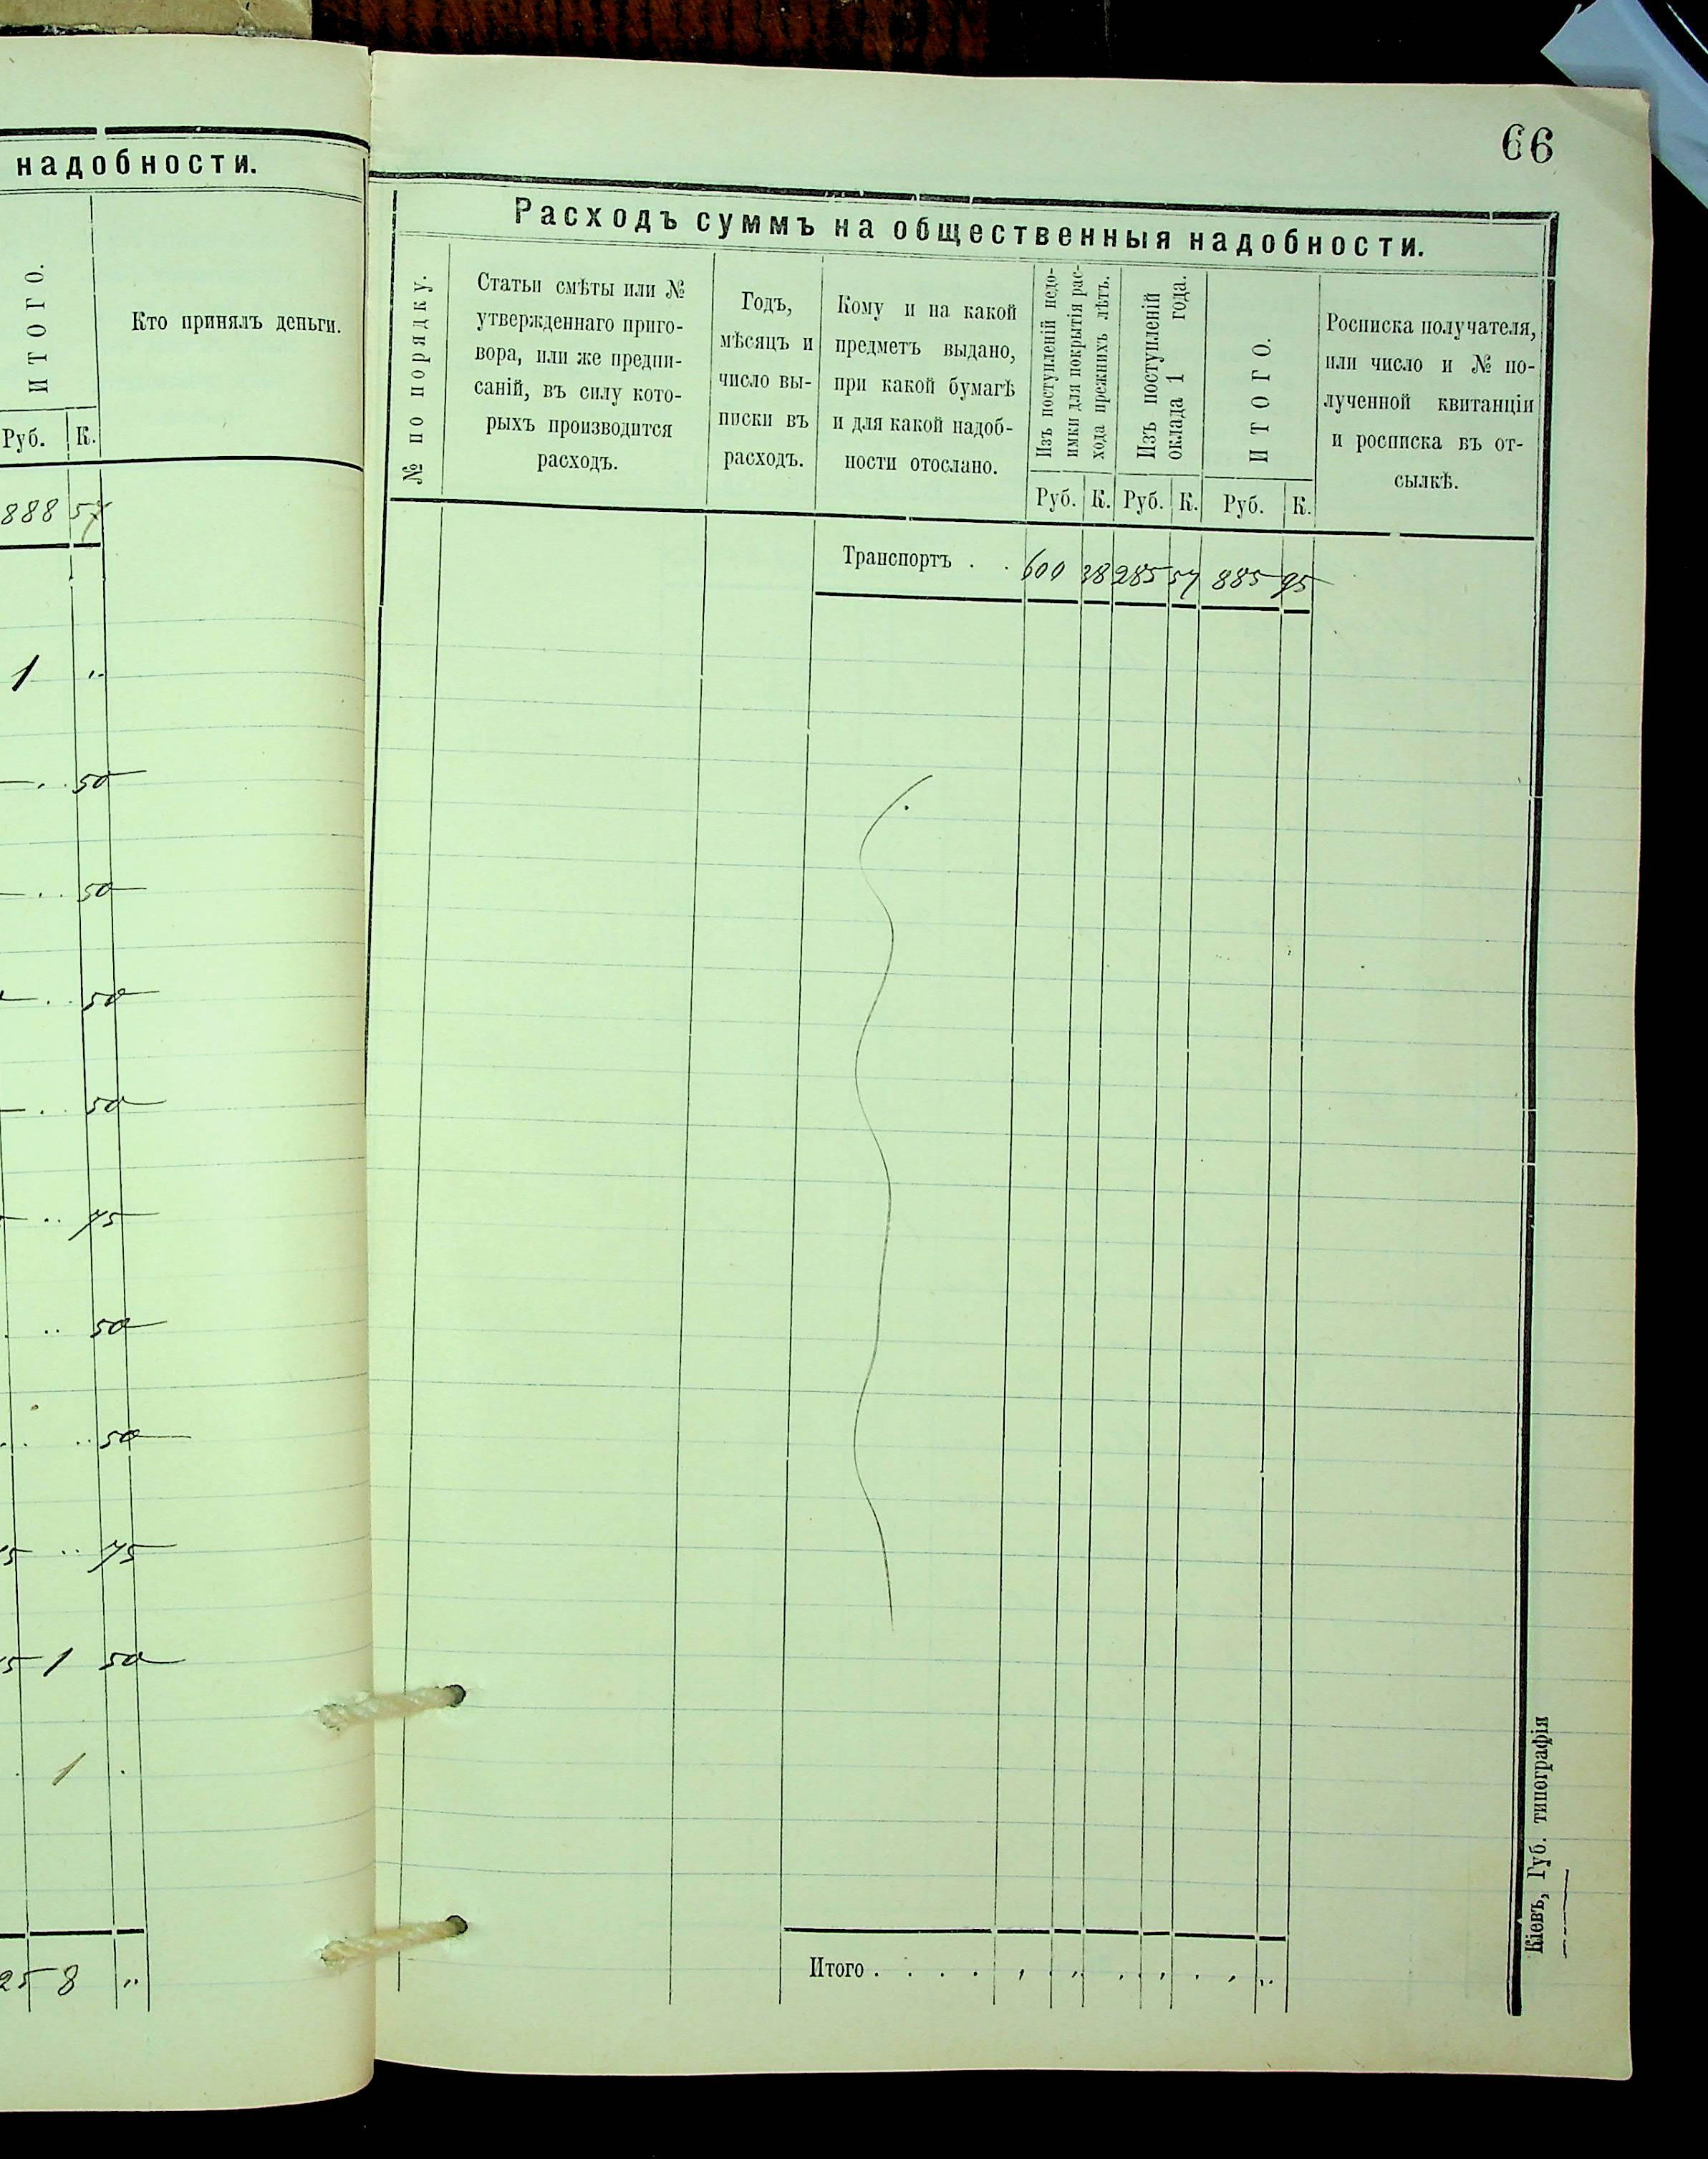 надобности.
ИТОГО.
Кто принялъ деньги.
Руб. К.
888 57
1 ..
50
50
50
50
75
50
50
75
1 50
1
25 8 ..
66
Расходъ суммъ на общественныя надобности.
№ по порядку.
Статьи смѣты или №
утвержденнаго приго-
вора, или же предпи-
саній, въ силу кото-
рыхъ производится
расходъ.
Годъ,
мѣсяцъ и
число вы-
писки въ
расходъ.
Кому и на какой
предметъ выдано,
при какой бумагѣ
и для какой надоб-
ности отослано.
Изъ поступленій недо-
имки для покрытія рас-
хода прежнихъ лѣтъ.
Изъ поступленій
оклада 1 года.
ИТОГО.
Росписка получателя,
или число и № по-
лученной квитанціи
и росписка въ от-
сылкѣ.
Руб. К. Руб. К. Руб. К.
Транспортъ . . 600 38 285 57 885 95
Итого . . . .
Кіевъ, Губ. типографія